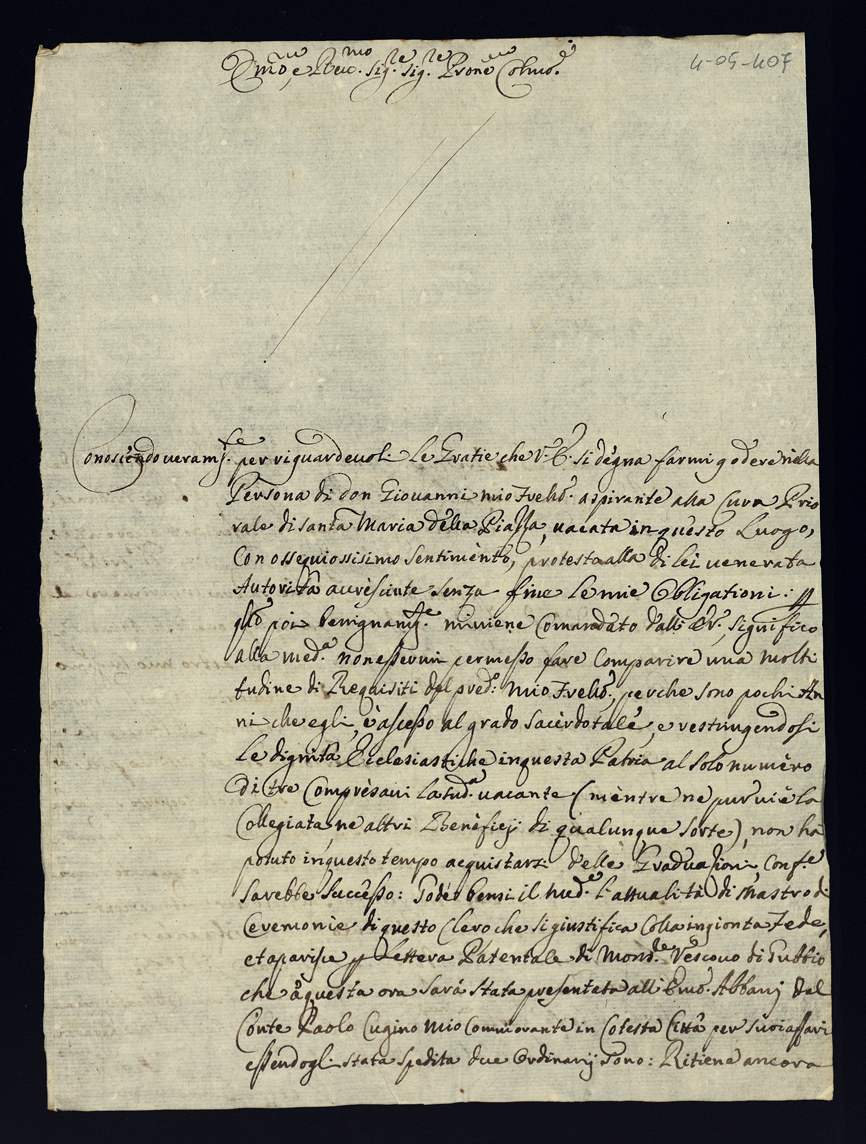 4-05-407
Emo, e Reumo. Sigre. Sigre. Prone Colmo.
Conoscendo veramte. per riguardevoli le Gratie che V. E. si degna farmi godere nella
Persona di don Giovanni mio Frello. aspirante alla Cura Prio
rale di Santa Maria della Piazza, vacata in questo Luogo,
Con ossequiosissimo Sentimento, protesto alla di Lei venerata
Autorità accresciute senza fine le mie Obligationi.
poi benignamte. mi viene Comandato dall' significo
alla meda. non essermi permesso fare Comparire una molti
tudine di Requisiti del predo. mio Frello, perche sono pochi An
ni che egli è ascesso al grado Sacerdotale, e restringendosi
Le dignità Ecclesiastiche in questa Patria al solo numero
di tre Compresavi la sudа. vacante (mentre ne pur vi è la
Collegiata, ne altri Beneficij di qualunque sorte), non hà
potuto in questo tempo acquistarsi delle Graduazioni, Confe.
Sarebbe Successo: Goder bensi il mede. l'attualità di Mastro di
Ceremonie di questo Clero che si giustifica Colla ingionta Fede,
et aparisce Lettera Patentale di Monsr. Vescovo di Gubbio
che à questa ora sarà stata presentata all' Emo. Albani dal
Conte Paolo Cugino mio Commorante in Cotesta Città per suoi affari
essendogli stata spedita due Ordinarij sono: Ritiene ancora